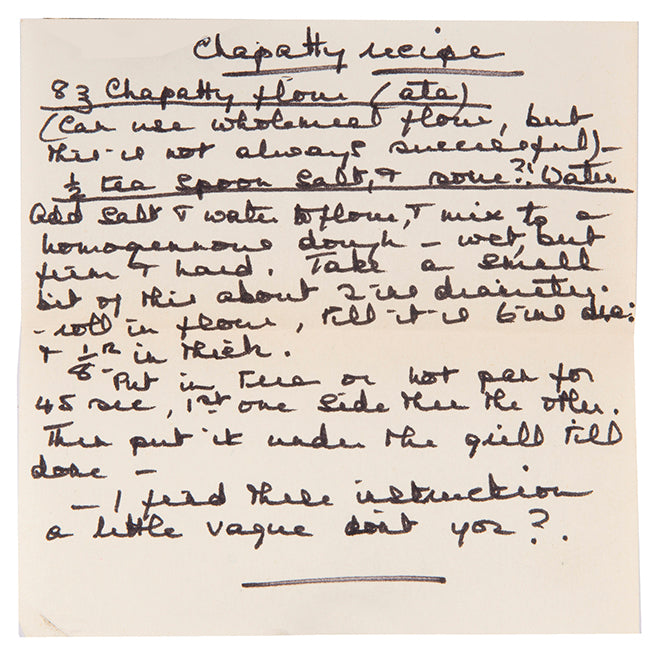 Chapatty recipe
8 ℥ Chapatty flour (ata)
(Can use wholemeal flour, but
this is not always successful) –
½ tea spoon salt, & some?! Water
Add salt & water to flour, & mix to a
homogennous dough – wet, but
firm & hard. Take a small
bit of this about 2-ins diametre.
- roll in flour, till it is 6-ins dia:
& ⅛th in thick.
Put in or hot pan for
45 sec, 1st one side then the other.
Then put it under the grill till
done –
– I find these instruction
a little vague dont you?.